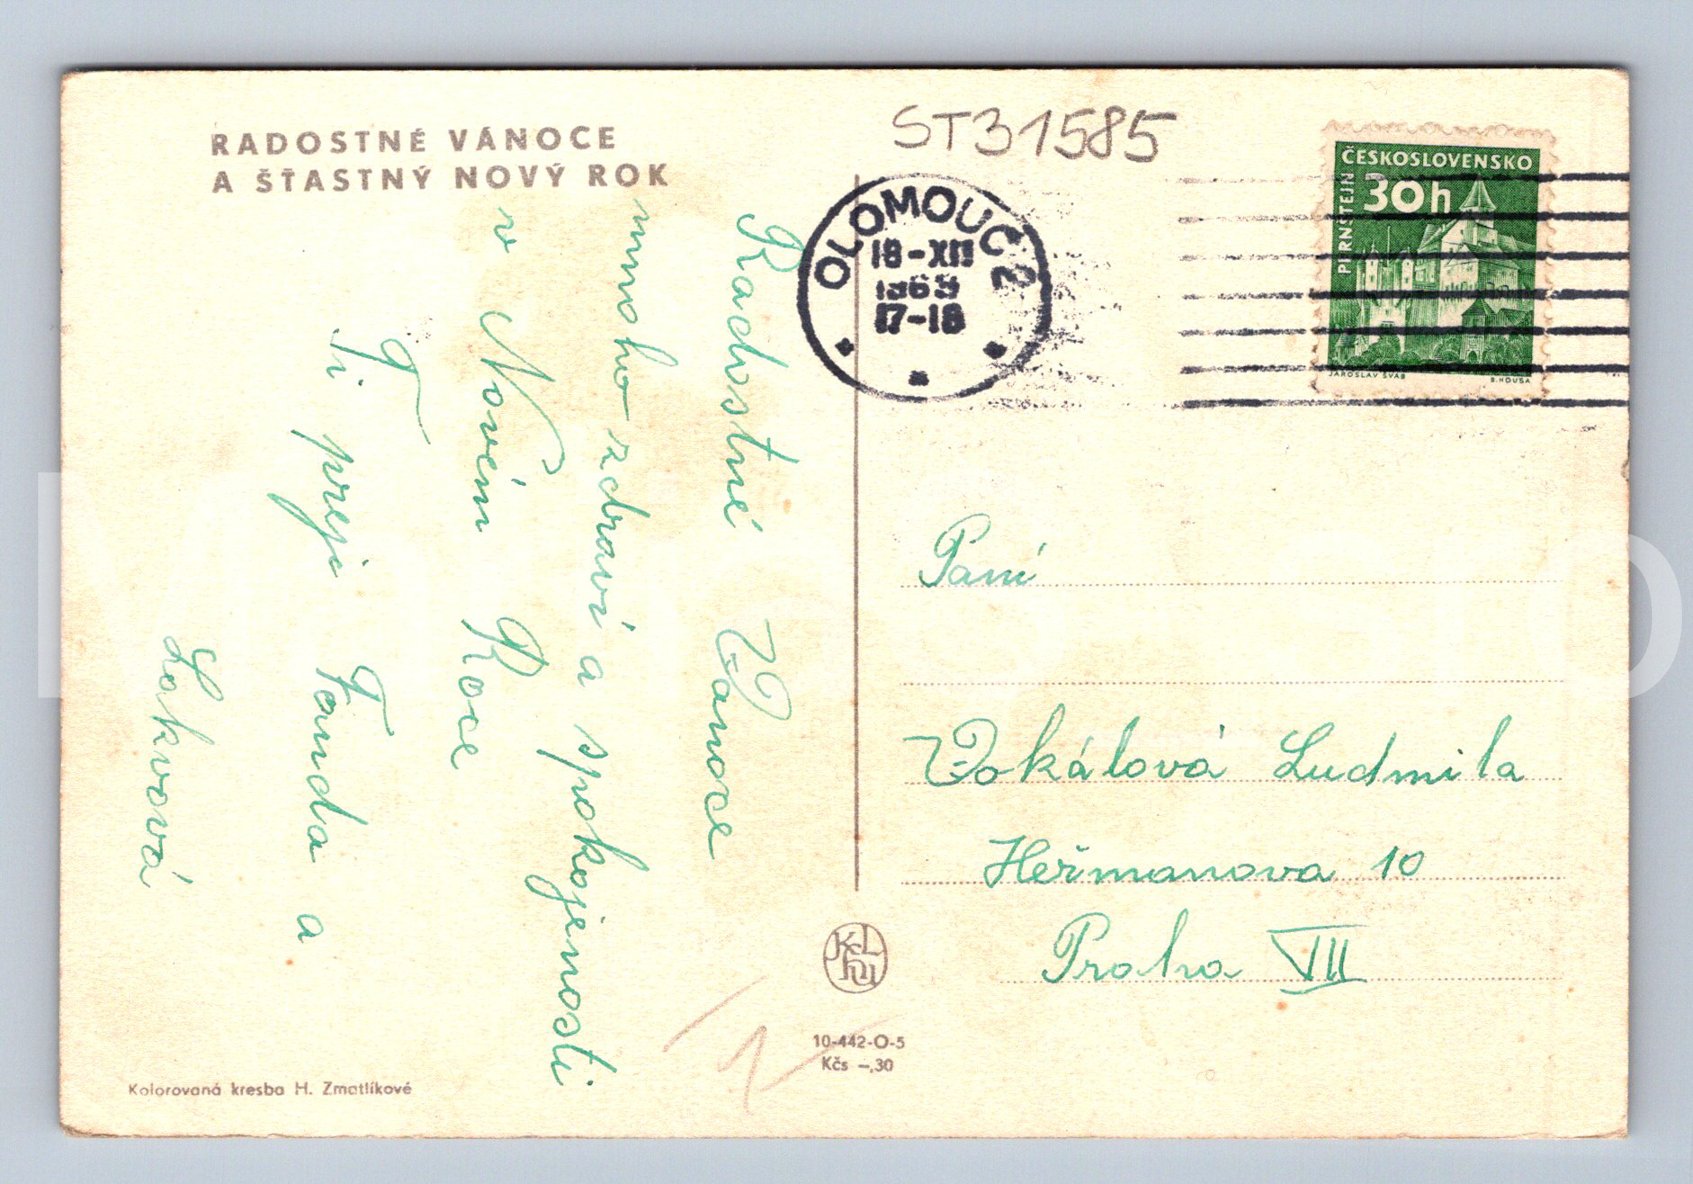 RADOSTNÉ VÁNOCE
A ŠŤASTNÝ NOVÝ ROK
Radostné Vanoce
mnoho zdraví a spokojenosti
v Novém Roce
Ti prejí Fanda a
Lokvová
Kolorovaná kresba H. Zmatlíkové
ST31585
OLOMOUC 2
18-XII
1969
17-18
ČESKOSLOVENSKO
30h
PERNŠTEJN
JAROSLAV ŠVÁB
B. HOUSA
Paní
Vokálová Ludmila
Heřmanova 10
Praha VII
10-442-O-5
Kčs -,30